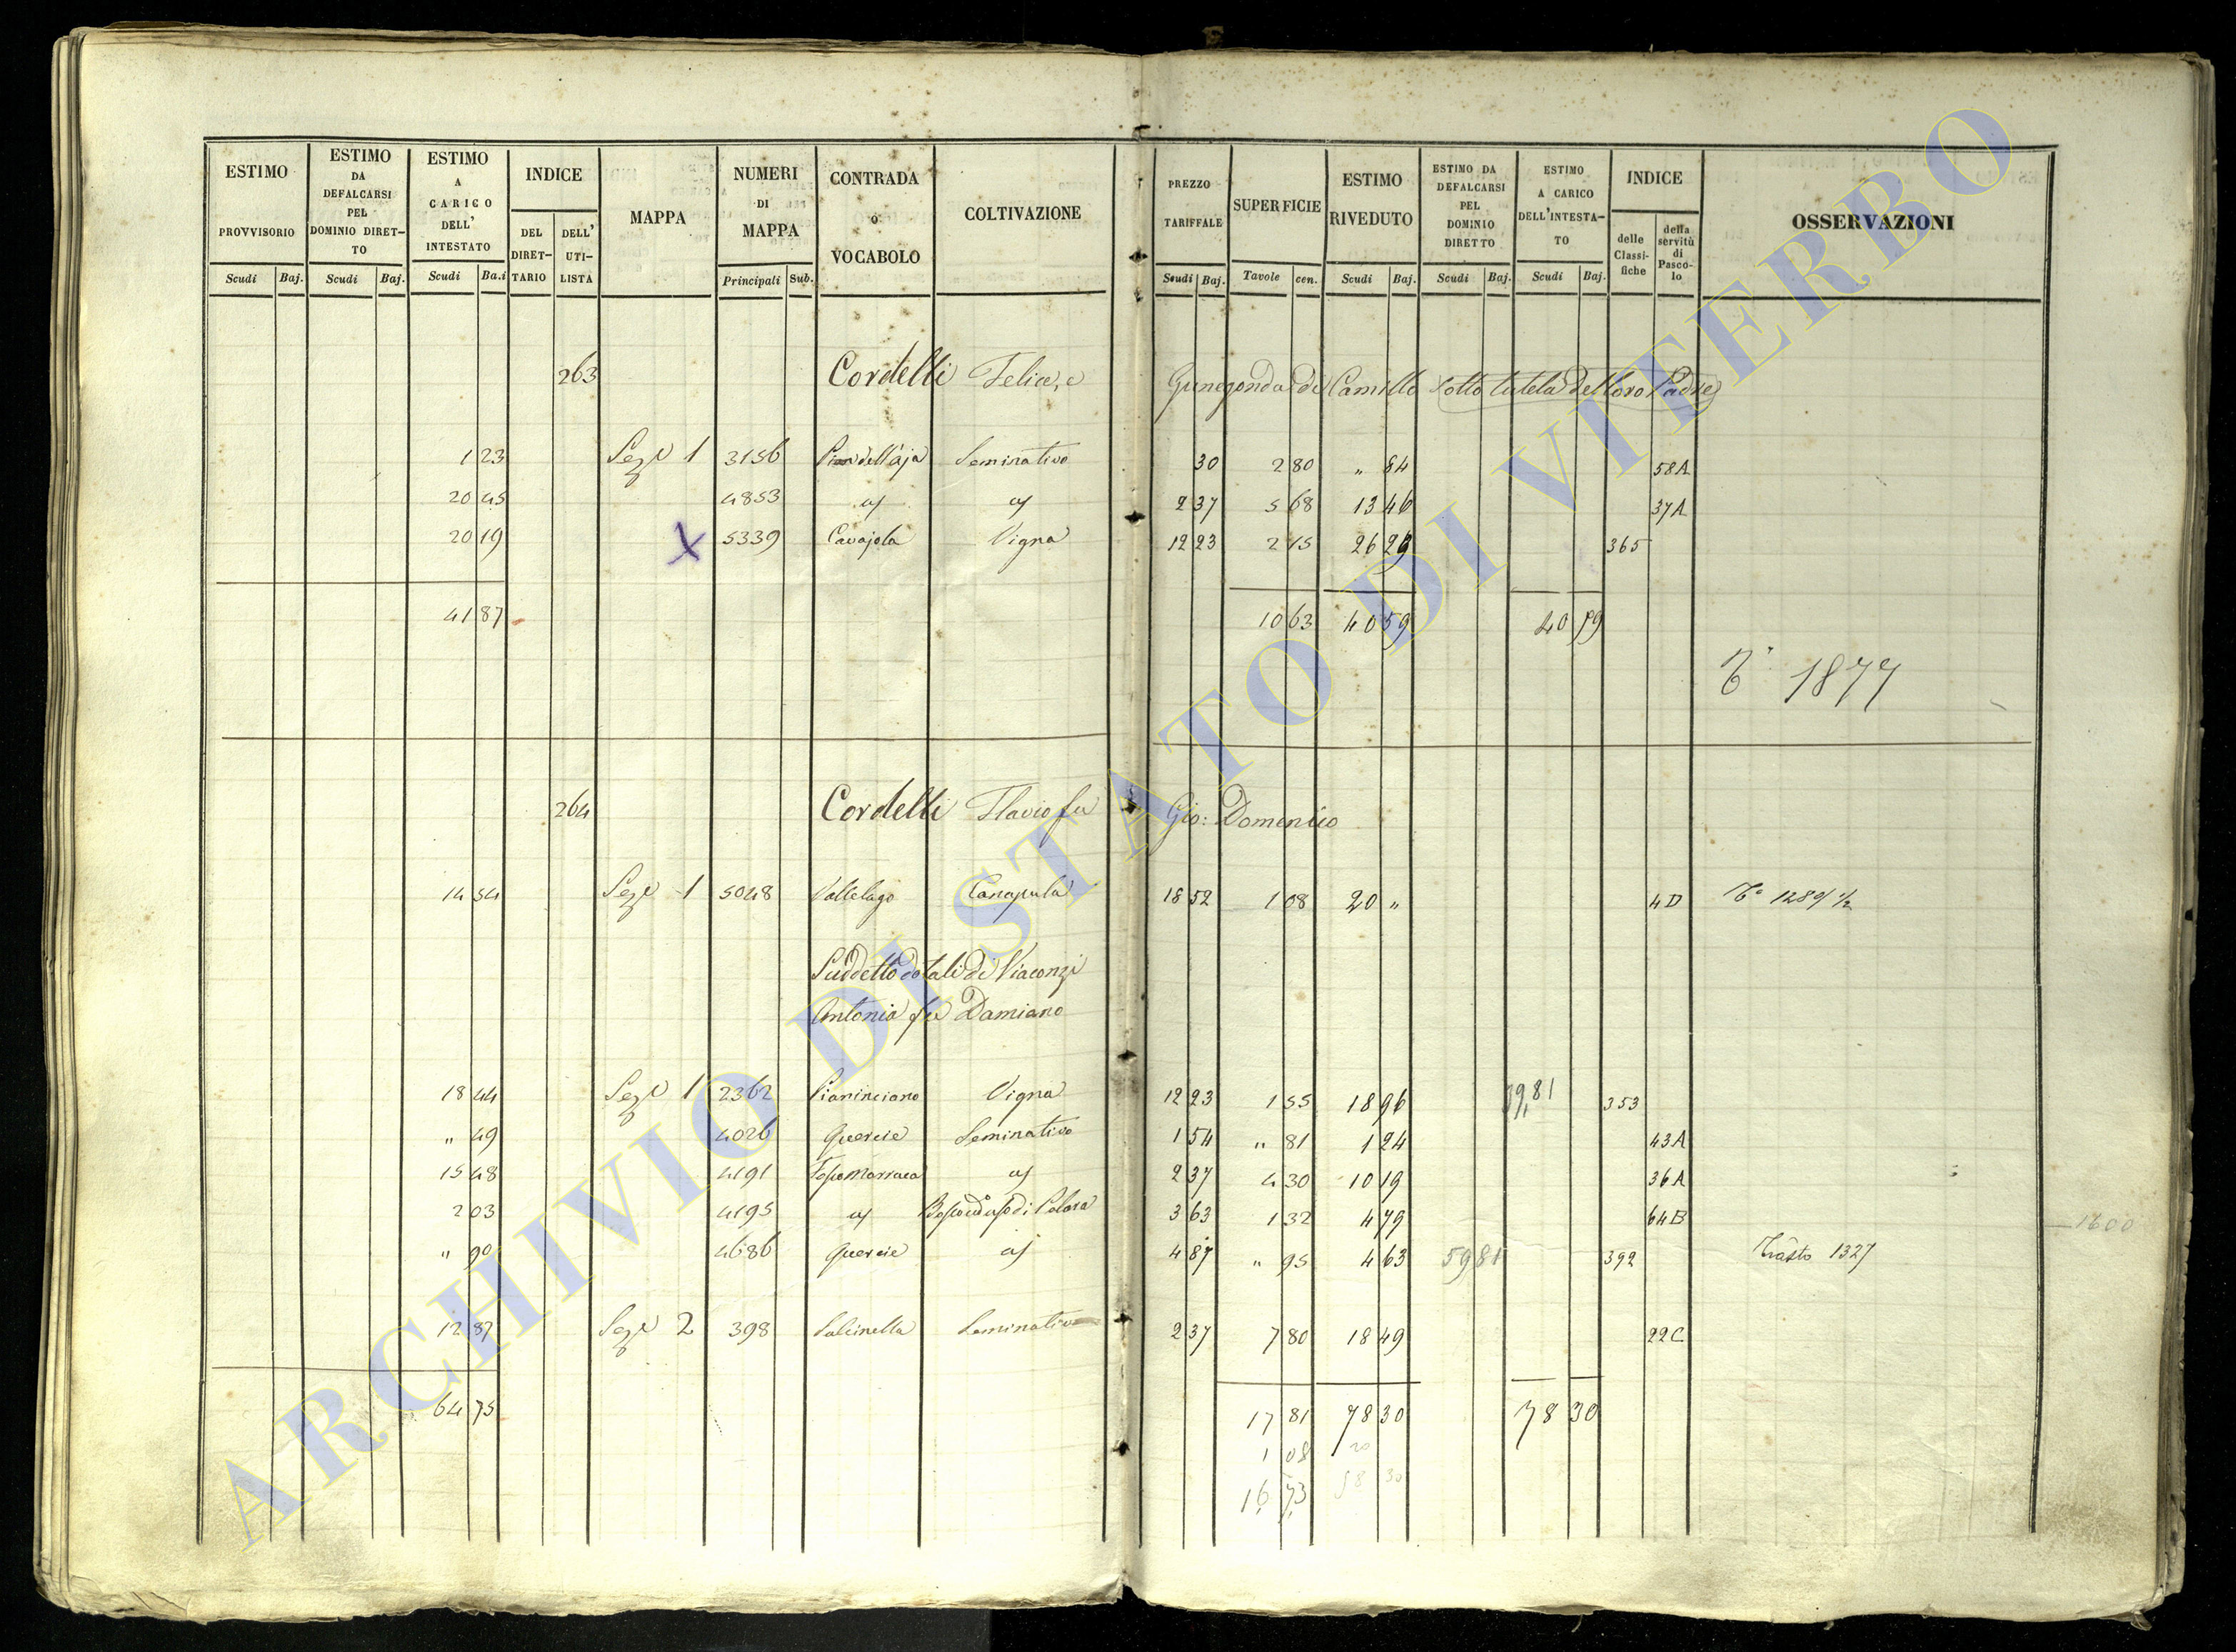 ESTIMO PROVVISORIO Scudi Baj.
ESTIMO DA DEFALCARSI PEL DOMINIO DIRET-TO Scudi Baj.
ESTIMO A CARICO DELL' INTESTATO Scudi Ba.i
INDICE DEL DIRET-TARIO DELL' UTI-LISTA
MAPPA
NUMERI DI MAPPA Principali Sub.
CONTRADA o VOCABOLO
COLTIVAZIONE
PREZZO TARIFFALE Scudi Baj.
SUPERFICIE Tavole cen.
ESTIMO RIVEDUTO Scudi Baj.
ESTIMO DA DEFALCARSI PEL DOMINIO DIRETTO Scudi Baj.
ESTIMO A CARICO DELL'INTESTA-TO Scudi Baj.
INDICE delle Classi-fiche della servitù di Pasco-lo
OSSERVAZIONI
263 Cordelli Felice, e Gunegonda di Camillo sotto tutela del loro Padre
1 23 Sez.e 1 3156 Pian dell'aja Seminativo 30 2 80 „ 84 58A
20 45 4853 2 37 5 68 13 46 37A
20 19 X 5339 Cavajola Vigna 12 23 2 15 26 29 365
41 87 10 63 40 59 40 59
T.o 1877
264 Cordelli Flavio fu Gio: Domenico
14 54 Sez.e 1 5048 Vallelago Canapule 18 52 1 08 20 „ 4D T.o 1289 1/2
Suddetto dotali di Viaconzi
Antonia fu Damiano
18 44 Sez.e 1 2362 Pianinciano Vigna 12 23 1 55 18 96 59,81 353
„ 49 4026 Quercie Seminativo 1 54 „ 81 1 24 43A
15 48 4191 2 37 4 30 10 19 36A
2 03 4195 3 63 1 32 4 79 64B 1600
„ 90 4686 Quercie 4 87 „ 95 4 63 59 81 392 Trasto 1327
12 87 Sez.e 2 398 Salcinella Seminativo 2 37 7 80 18 49 22C
64 75 17 81 78 30 78 30
1 08 20
16 73 58 30
ARCHIVIO DI STATO DI VITERBO